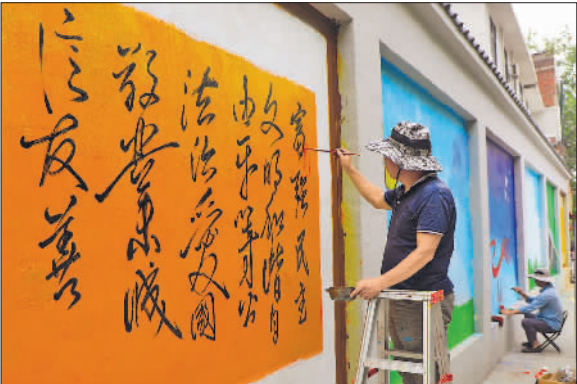 富强民主
文明和谐自
由平等公
法治爱国
敬业诚
信友善